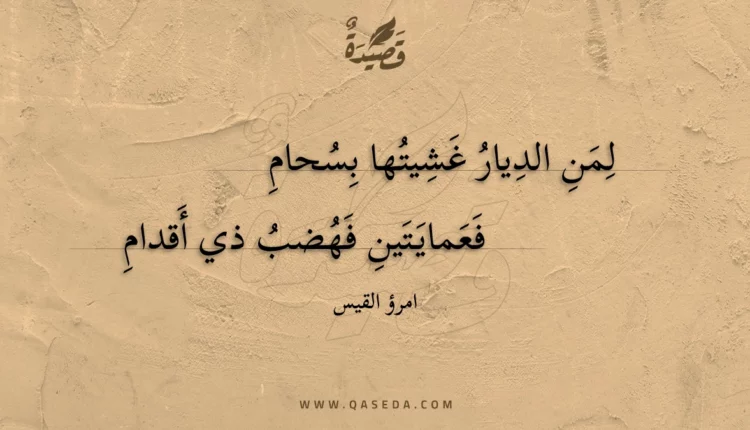 قَصِيدَةٌ
لِمَنِ الدِيارُ غَشِيتُها بِسُحامِ
فَعَمايَتَينِ فَهُضبُ ذي أَقدامِ
امرؤ القيس
WWW.QASEDA.COM